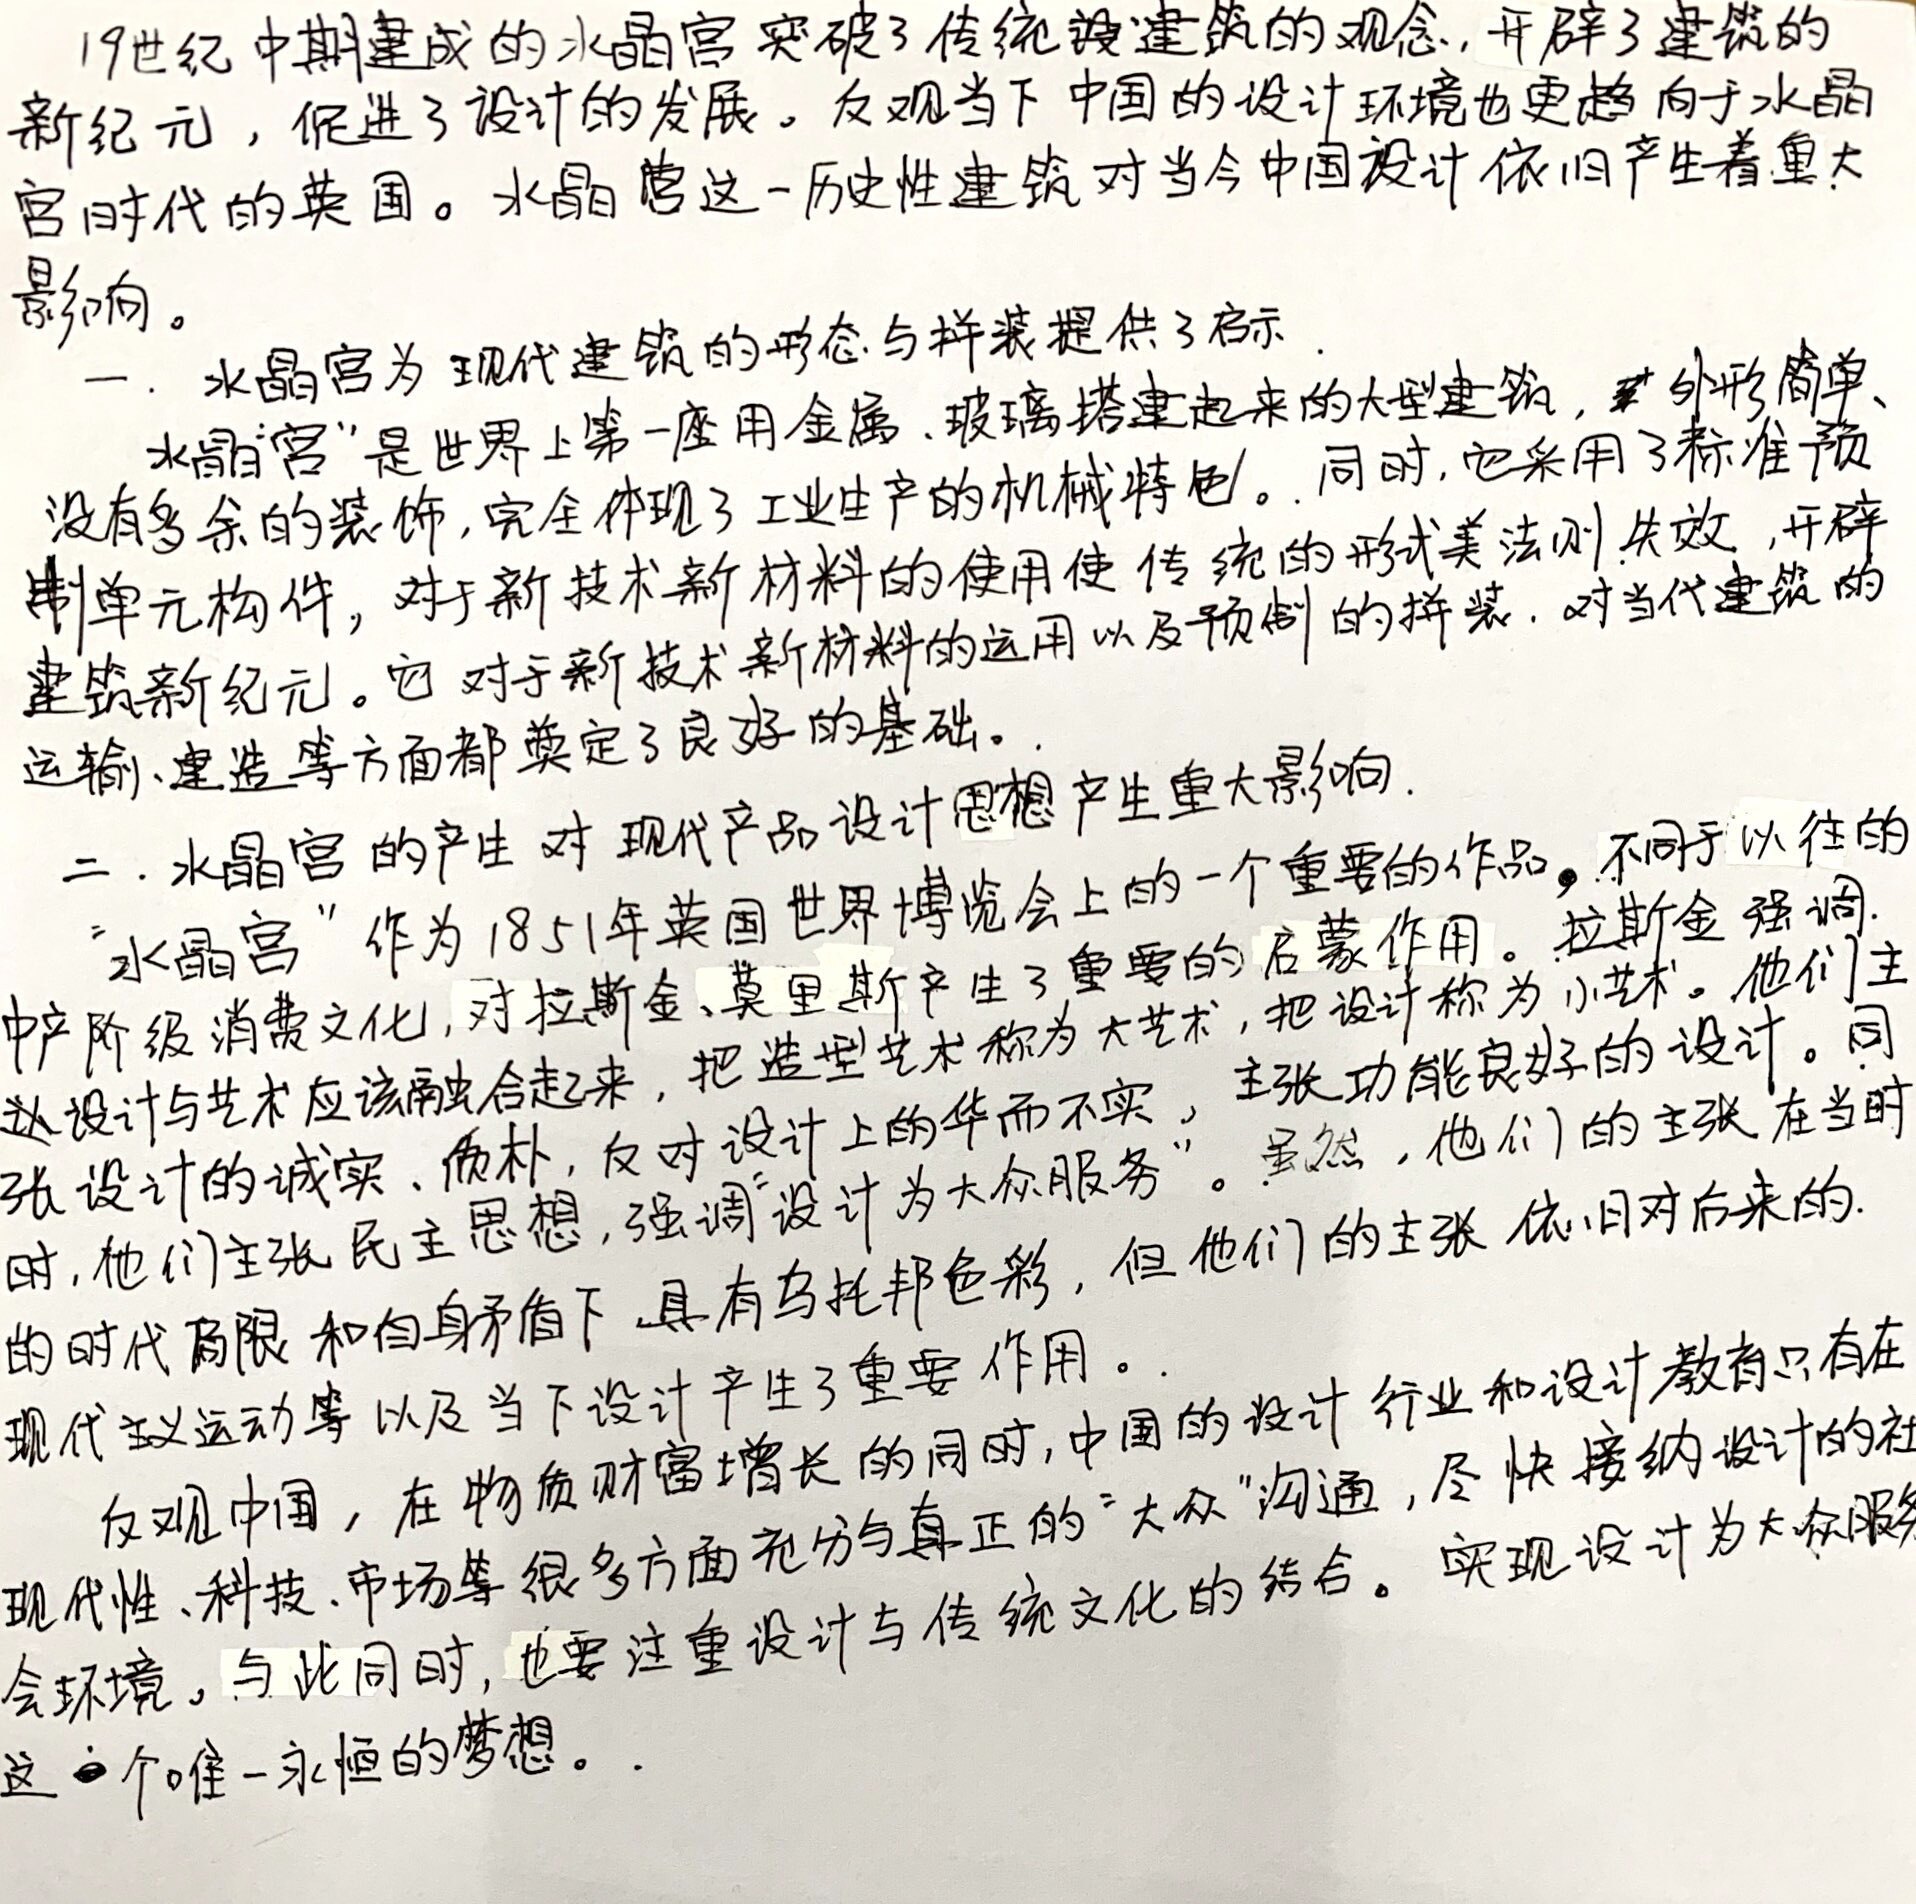 19世纪中期建成的水晶宫突破了传统建筑的观念，开辟了建筑的
新纪元，促进了设计的发展。反观当下中国的设计环境也更趋向于水晶
宫时代的英国。水晶宫这一历史性建筑对当今中国设计依旧产生着重大
影响。
一．水晶宫为现代建筑的形态与拼装提供了启示．
水晶“宫”是世界上第一座用金属、玻璃搭建起来的大型建筑，外形简单、
没有多余的装饰，完全体现了工业生产的机械特色。同时，它采用了标准预
制单元构件，对于新技术新材料的使用使传统的形式美法则失效，开辟
建筑新纪元。它对于新技术新材料的运用以及预制的拼装．对当代建筑的
运输、建造等方面都奠定了良好的基础。
二．水晶宫的产生对现代产品设计思想产生重大影响．
“水晶宫”作为1851年英国世界博览会上的一个重要的作品，不同于以往的
中产阶级消费文化，对拉斯金、莫里斯产生了重要的启蒙作用。拉斯金强调
设计与艺术应该融合起来，把造型艺术称为大艺术，把设计称为小艺术。他们主
张设计的诚实、质朴，反对设计上的华而不实，主张功能良好的设计。同
时，他们主张民主思想，强调“设计为大众服务”。虽然，他们的主张在当时
的时代局限和自身矛盾下具有乌托邦色彩，但他们的主张依旧对后来的
现代主义运动等以及当下设计产生了重要作用。
反观中国，在物质财富增长的同时，中国的设计行业和设计教育只有在
现代性、科技、市场等很多方面充分与真正的“大众”沟通，尽快接纳设计的社
会环境，与此同时，也要注重设计与传统文化的结合。实现设计为大众服务
这个唯一永恒的梦想。